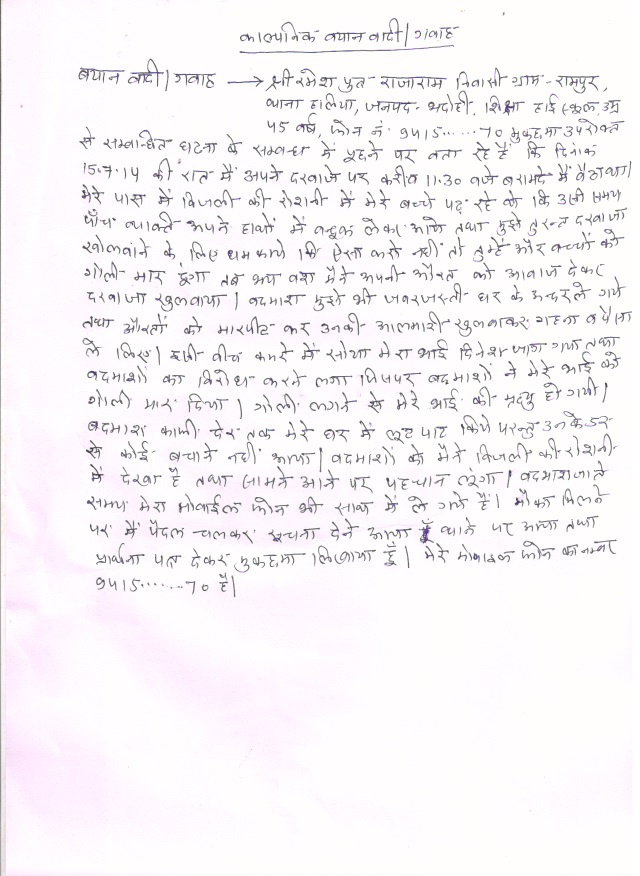 काल्पनिक बयान वादी/गवाह
बयान वादी/गवाह → श्री रमेश पुत्र राजाराम निवासी ग्राम - रामपुर,
थाना हालिया, जनपद- भदोही, शिक्षा हाई स्कूल, उम्र
45 वर्ष, फोन नं. 9415......70 मुकद्दमा उपरोक्त
से सम्बन्धित घटना के सम्बन्ध में पूछने पर बता रहे हैं कि दिनांक
15.7.14 की रात में अपने दरवाजे पर करीब 11.30 बजे बरामदे में बैठा था|
मेरे पास में बिजली की रोशनी में मेरे बच्चे पढ़ रहे थे कि उसी समय
पाँच व्यक्ति अपने हाथों में बन्दूक लेकर आये तथा मुझे तुरन्त दरवाजा
खोलवाने के लिए धमकाये कि ऐसा करो नहीं तो तुम्हें और बच्चों को
गोली मार दूंगा तब भय वश मैंने अपनी औरत को आवाज देकर
दरवाजा खुलवाया | बदमाश मुझे भी जबरजस्ती घर के अन्दर ले गये
तथा औरतों को मारपीट कर उनकी आलमारी खुलवाकर गहना व पैसा
ले लिए| इसी बीच कमरे में सोया मेरा भाई दिनेश जाग गया तथा
बदमाशों का विरोध करने लगा जिसपर बदमाशों ने मेरे भाई को
गोली मार दिया | गोली लगने से मेरे भाई की मृत्यु हो गयी|
बदमाश काफी देर तक मेरे घर में लूट पाट किये परन्तु उनके डर
से कोई बचाने नहीं आया | बदमाशों को मैंने बिजली की रोशनी
में देखा है तथा सामने आने पर पहचान लूंगा | बदमाश जाते
समय मेरा मोबाईल फोन भी साथ में ले गये हैं| मौका मिलने
पर मैं पैदल चलकर सूचना देने आया हूँ थाने पर आया तथा
प्रार्थना पत्र देकर मुकद्दमा लिखाया हूँ | मेरे मोबाइल फोन का नम्बर
9415.......70 है|